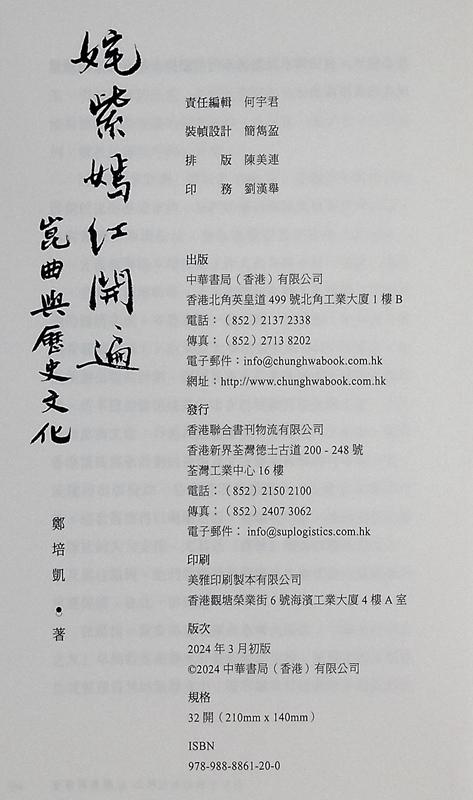 姹紫嫣红開遍
崑曲與歷史文化
鄭培凱 • 著
責任編輯 何宇君
裝幀設計 簡雋盈
排 版 陳美連
印 務 劉漢舉
出版
中華書局（香港）有限公司
香港北角英皇道 499 號北角工業大廈 1 樓 B
電話：（852）2137 2338
傳真：（852）2713 8202
電子郵件：info@chunghwabook.com.hk
網址：http://www.chunghwabook.com.hk
發行
香港聯合書刊物流有限公司
香港新界荃灣德士古道 200 - 248 號
荃灣工業中心 16 樓
電話：（852）2150 2100
傳真：（852）2407 3062
電子郵件： info@suplogistics.com.hk
印刷
美雅印刷製本有限公司
香港觀塘榮業街 6 號海濱工業大廈 4 樓 A 室
版次
2024 年 3 月初版
©2024 中華書局（香港）有限公司
規格
32 開（210mm x 140mm）
ISBN
978-988-8861-20-0